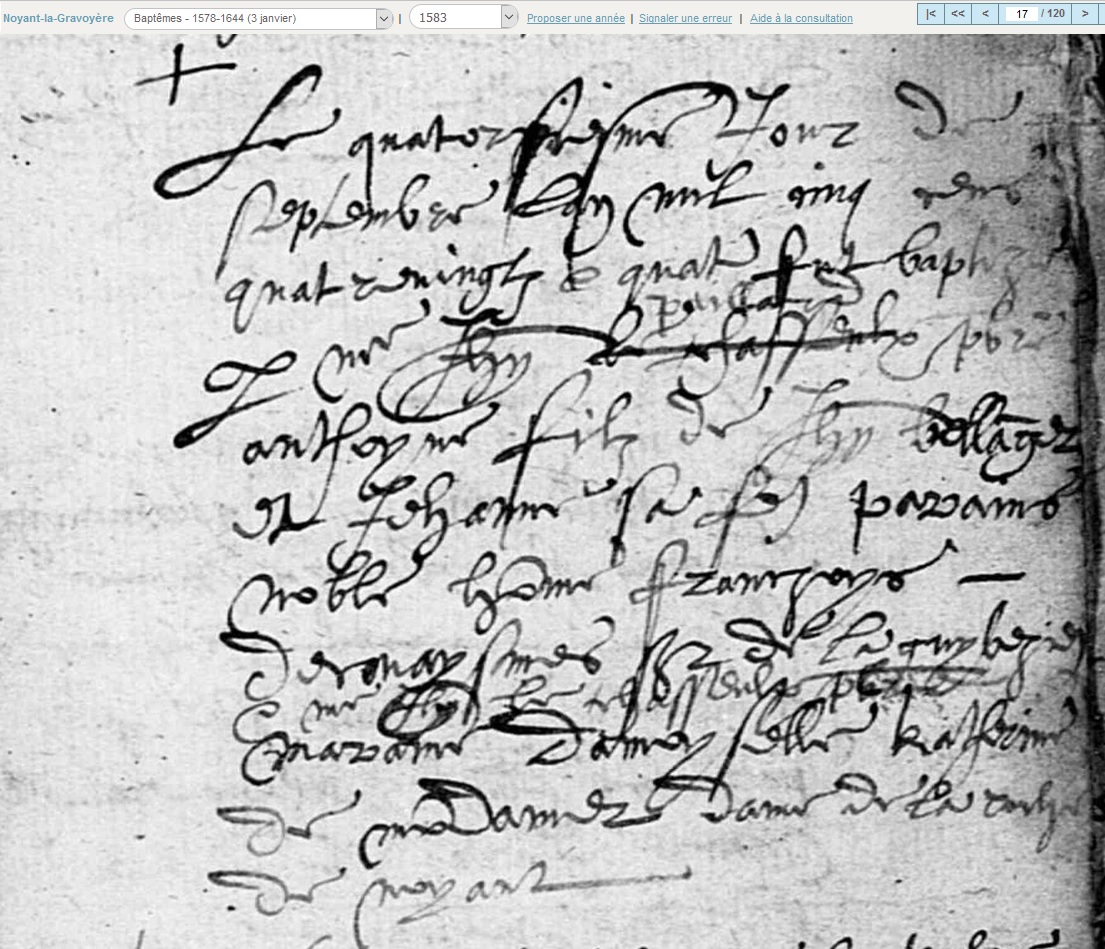 Noyant-la-Gravoyère Baptêmes - 1578-1644 (3 janvier) | 1583 Proposer une année | Signaler une erreur | Aide à la consultation |< << < 17 / 120 >
Le quatorsiesme Jour de
septembre lan mil cinq cens
quatre vingtz & quatre fut baptizé
p mre Jhn le chassenlx pbre
anthoyne filz de Jhn bellāger
et Jehanne sa fē parains
noble hōme Franczoys —
sr de la
& mre Jhn le pbre
maraine damoyselle Katherine
de dame de la roche
de noyant